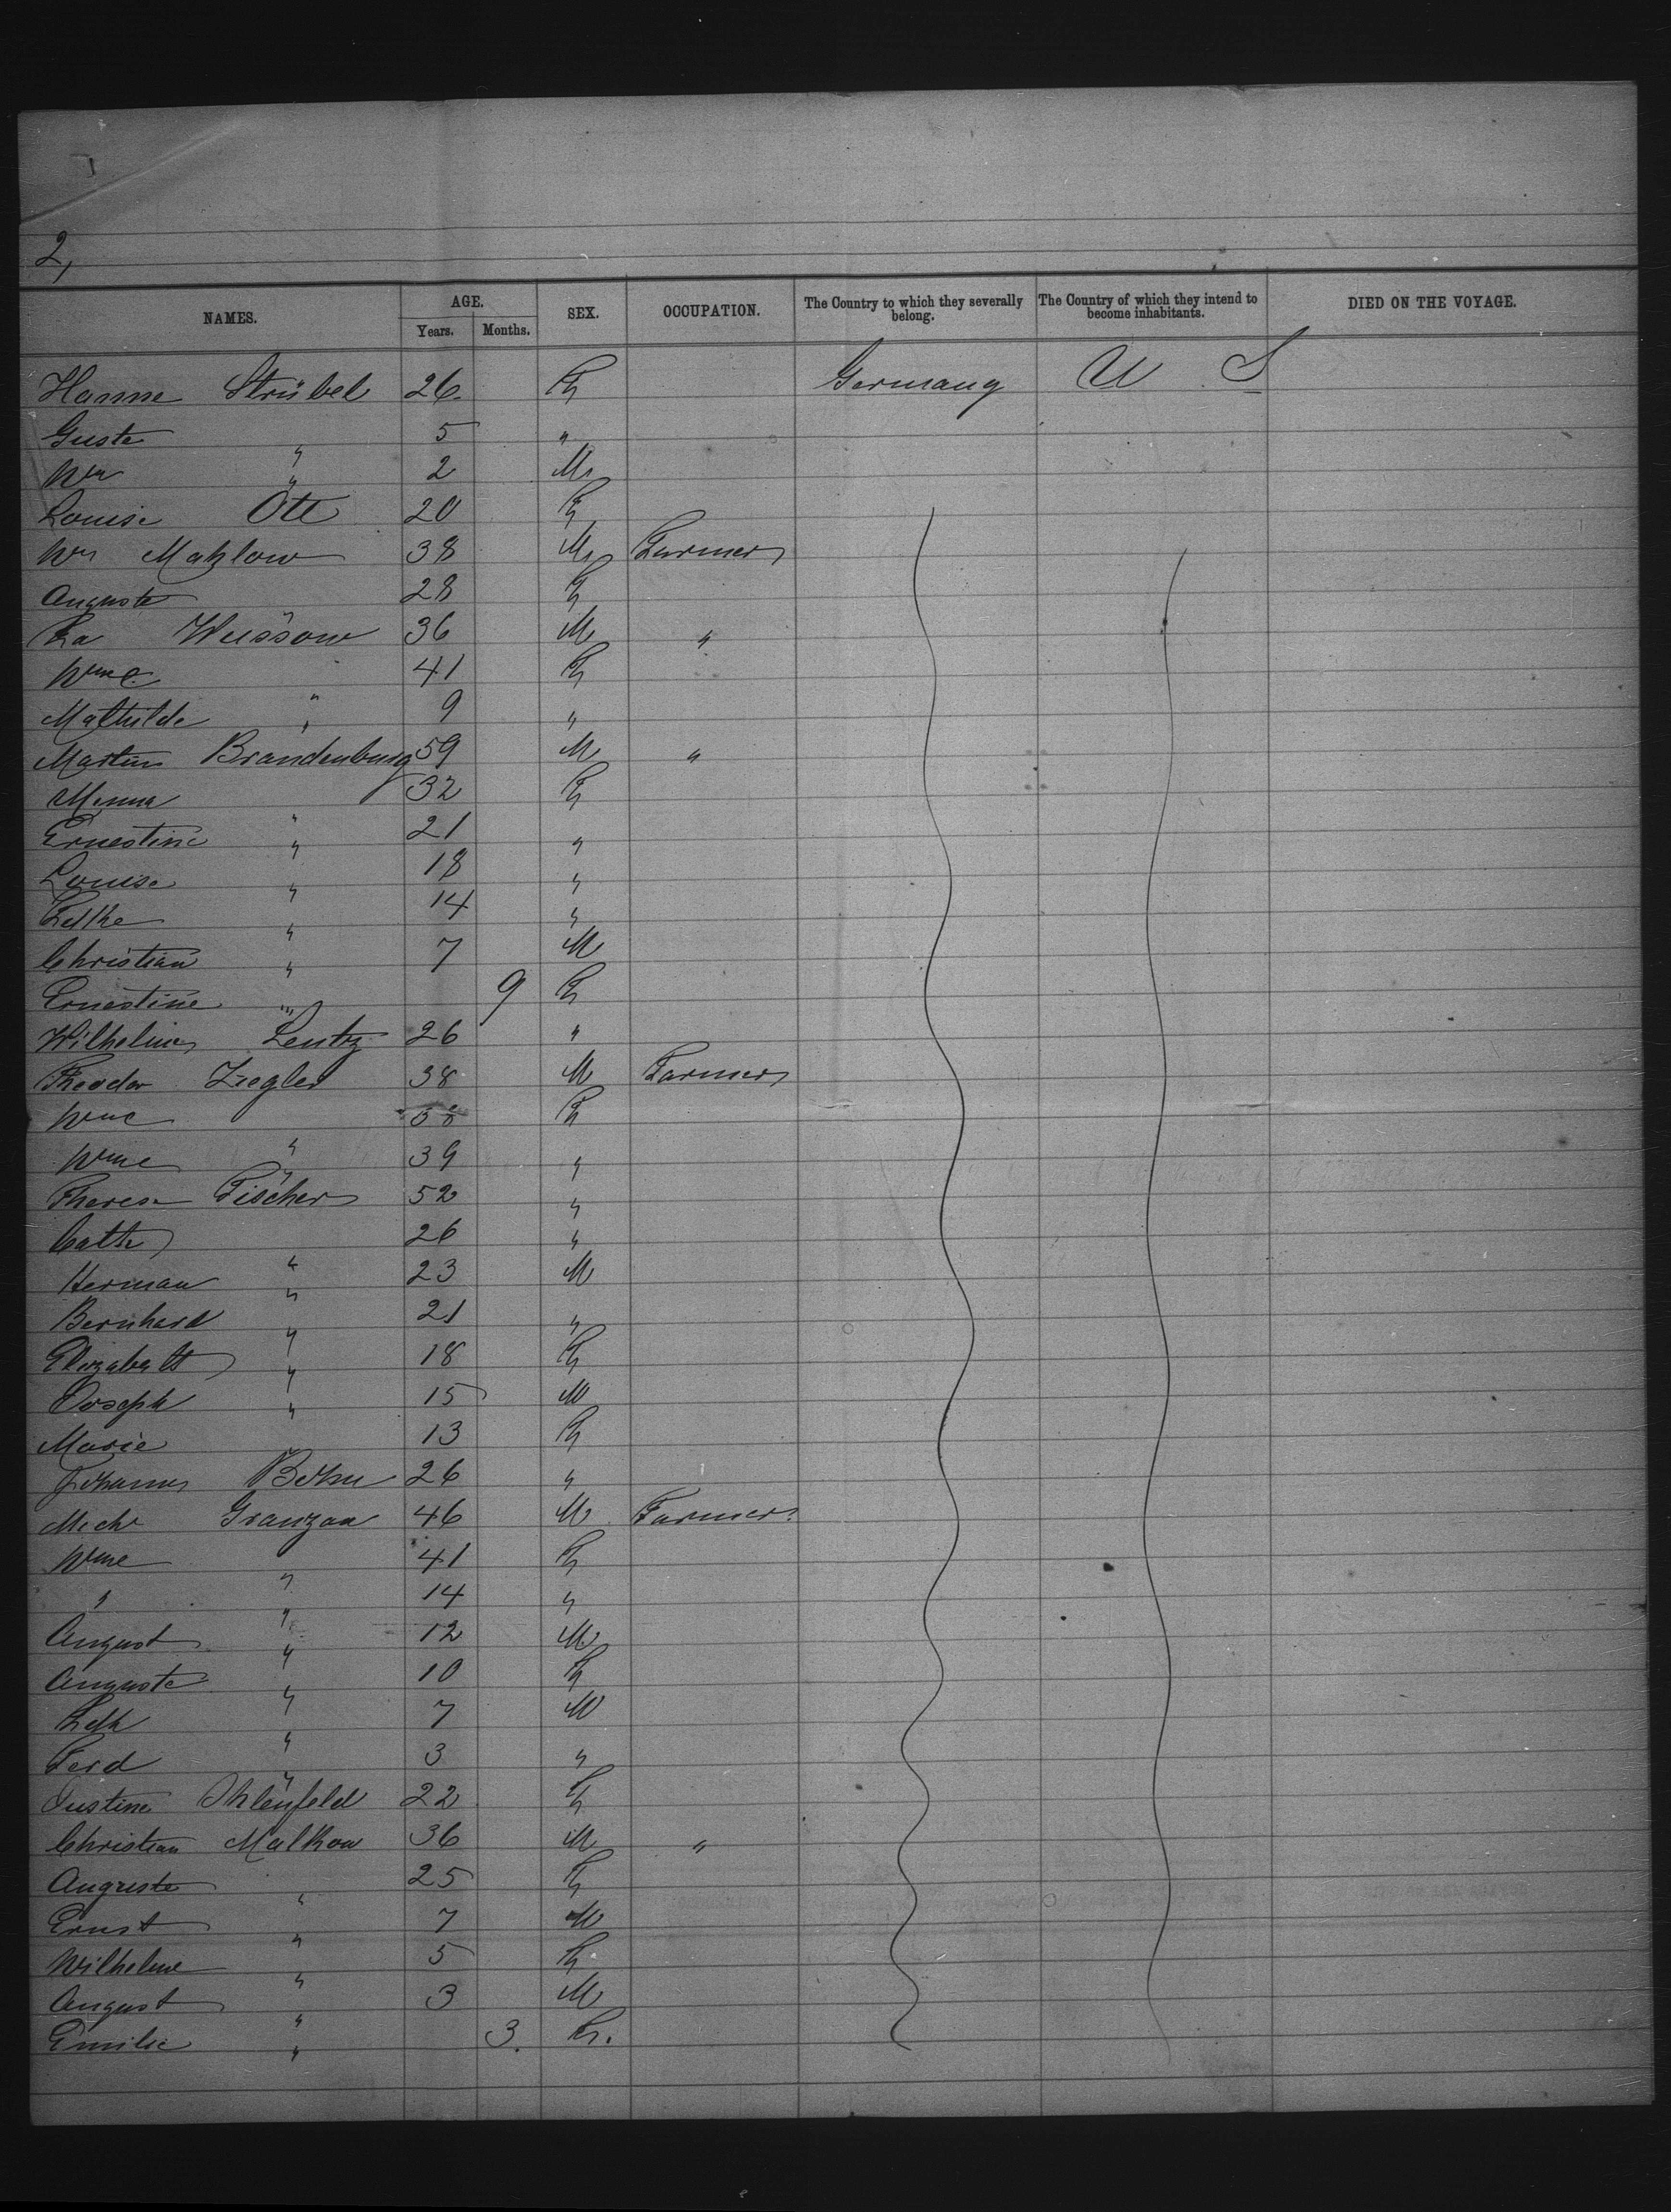 2,
NAMES. AGE. Years. Months. SEX. OCCUPATION. The Country to which they severally belong. The Country of which they intend to become inhabitants. DIED ON THE VOYAGE.
Hanne Strübel 26 F Germany U S
Guste " 5 "
Wm " 2 M
Louise Ott 20 F
Wm Mahlow 38 M Farmer
Auguste " 28 F
Wussow 36 M "
Wme " 41 F
Mathilde " 9 "
Martin Brandenburg 59 M "
Minna " 32 F
Ernestine " 21 "
Louise " 18 "
" 14 "
Christian " 7 M
Ernestine " 9 F
Wilhelmine Lentz 26 "
Theodor Ziegler 38 M Farmer
Wme " F
Wme " 39 "
Theresa Fischer 52 "
Cath " 26 "
Herman " 23 M
Bernhard " 21 "
Elizabeth " 18 F
Joseph " 15 M
Marie 13 F
Johanna Behm 26 "
Mich Granzau 46 M Farmer
Wme " 41 F
" " 14 "
August " 12 M
Auguste " 10 F
" 7 M
Ferd " 3 "
Justine Ohlenfeld 22 F
Christian Malkow 36 M "
Auguste " 25 F
Ernst " 7 M
Wilhelme " 5 F
August " 3 M
Emilie " 3. F.